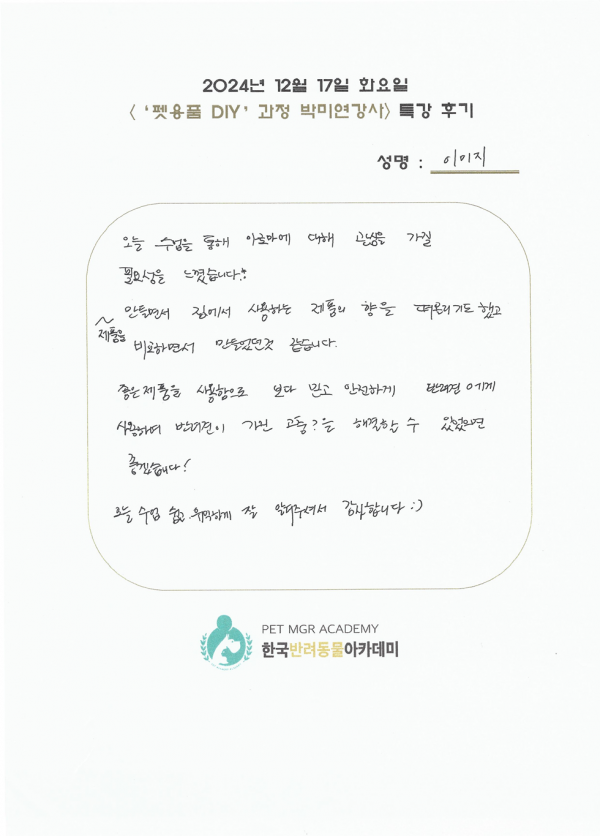 2024년 12월 17일 화요일
< ‘펫용품 DIY’ 과정 박미연강사> 특강 후기
성명 : 이미지
오늘 수업을 통해 아로마에 대해 관심을 가질
필요성을 느꼈습니다!
만들면서 집에서 사용하는 제품의 향을 떠올리기도 했고
제품을
비교하면서 만들었던것 같습니다.
좋은 제품을 사용함으로 보다 믿고 안전하게 반려견에게
사용하며 반려견이 가진 고충?을 해결할 수 있었으면
좋겠습니다!
오늘 수업 쉽고 명확하게 잘 알려주셔서 감사합니다 :)
PET MGR ACADEMY
한국반려동물아카데미